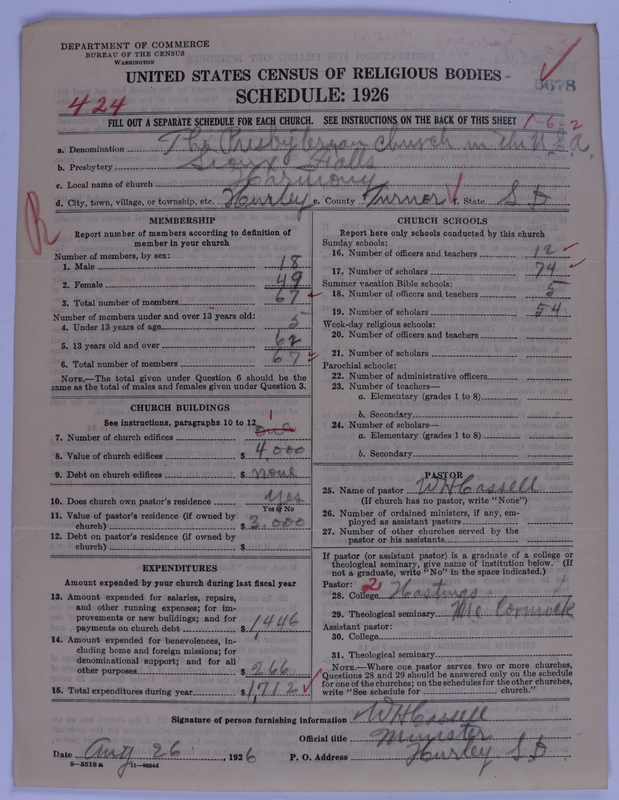 DEPARTMENT OF COMMERCE
BUREAU OF THE CENSUS
WASHINGTON
UNITED STATES CENSUS OF RELIGIOUS BODIES
5678
SCHEDULE: 1926
424
FILL OUT A SEPARATE SCHEDULE FOR EACH CHURCH. SEE INSTRUCTIONS ON THE BACK OF THIS SHEET
1-6-2
a. Denomination The Presbyterian Church in the U.S.A.
b. Presbytery Sioux Falls
c. Local name of church Harmony
d. City, town, village, or township, etc. Hurley e. County Turner f. State S D
R
MEMBERSHIP
Report number of members according to definition of
member in your church
Number of members, by sex:
1. Male 18
2. Female 49
3. Total number of members 67
Number of members under and over 13 years old:
4. Under 13 years of age 5
5. 13 years old and over 62
6. Total number of members 67
NOTE.—The total given under Question 6 should be the
same as the total of males and females given under Question 3.
CHURCH BUILDINGS
See instructions, paragraphs 10 to 12
1
7. Number of church edifices one
8. Value of church edifices $ 4,000
9. Debt on church edifices $ none
10. Does church own pastor's residence yes
Yes or No
11. Value of pastor's residence (if owned by
church) $ 3,000
12. Debt on pastor's residence (if owned by
church) $
EXPENDITURES
Amount expended by your church during last fiscal year
13. Amount expended for salaries, repairs,
and other running expenses; for im-
provements or new buildings; and for
payments on church debt $ 1,446
14. Amount expended for benevolences, in-
cluding home and foreign missions; for
denominational support; and for all
other purposes $ 266
15. Total expenditures during year $ 1,712
CHURCH SCHOOLS
Report here only schools conducted by this church
Sunday schools:
16. Number of officers and teachers 12
17. Number of scholars 74
Summer vacation Bible schools:
18. Number of officers and teachers 5
19. Number of scholars 54
Week-day religious schools:
20. Number of officers and teachers
21. Number of scholars
Parochial schools:
22. Number of administrative officers
23. Number of teachers—
a. Elementary (grades 1 to 8)
b. Secondary
24. Number of scholars—
a. Elementary (grades 1 to 8)
b. Secondary
PASTOR
25. Name of pastor W H Cassell
(If church has no pastor, write "None")
26. Number of ordained ministers, if any, em-
ployed as assistant pastors
27. Number of other churches served by the
pastor or his assistants
If pastor (or assistant pastor) is a graduate of a college or
theological seminary, give name of institution below. (If
not a graduate, write "No" in the space indicated.)
Pastor: 2
28. College Hastings
29. Theological seminary McCormick
Assistant pastor:
30. College
31. Theological seminary
NOTE.—Where one pastor serves two or more churches,
Questions 28 and 29 should be answered only on the schedule
for one of the churches; on the schedules for the other churches,
write "See schedule for church."
Signature of person furnishing information W H Cassell
Official title Minister
Date Aug 26, 1926 P. O. Address Hurley S D
8-5518 a